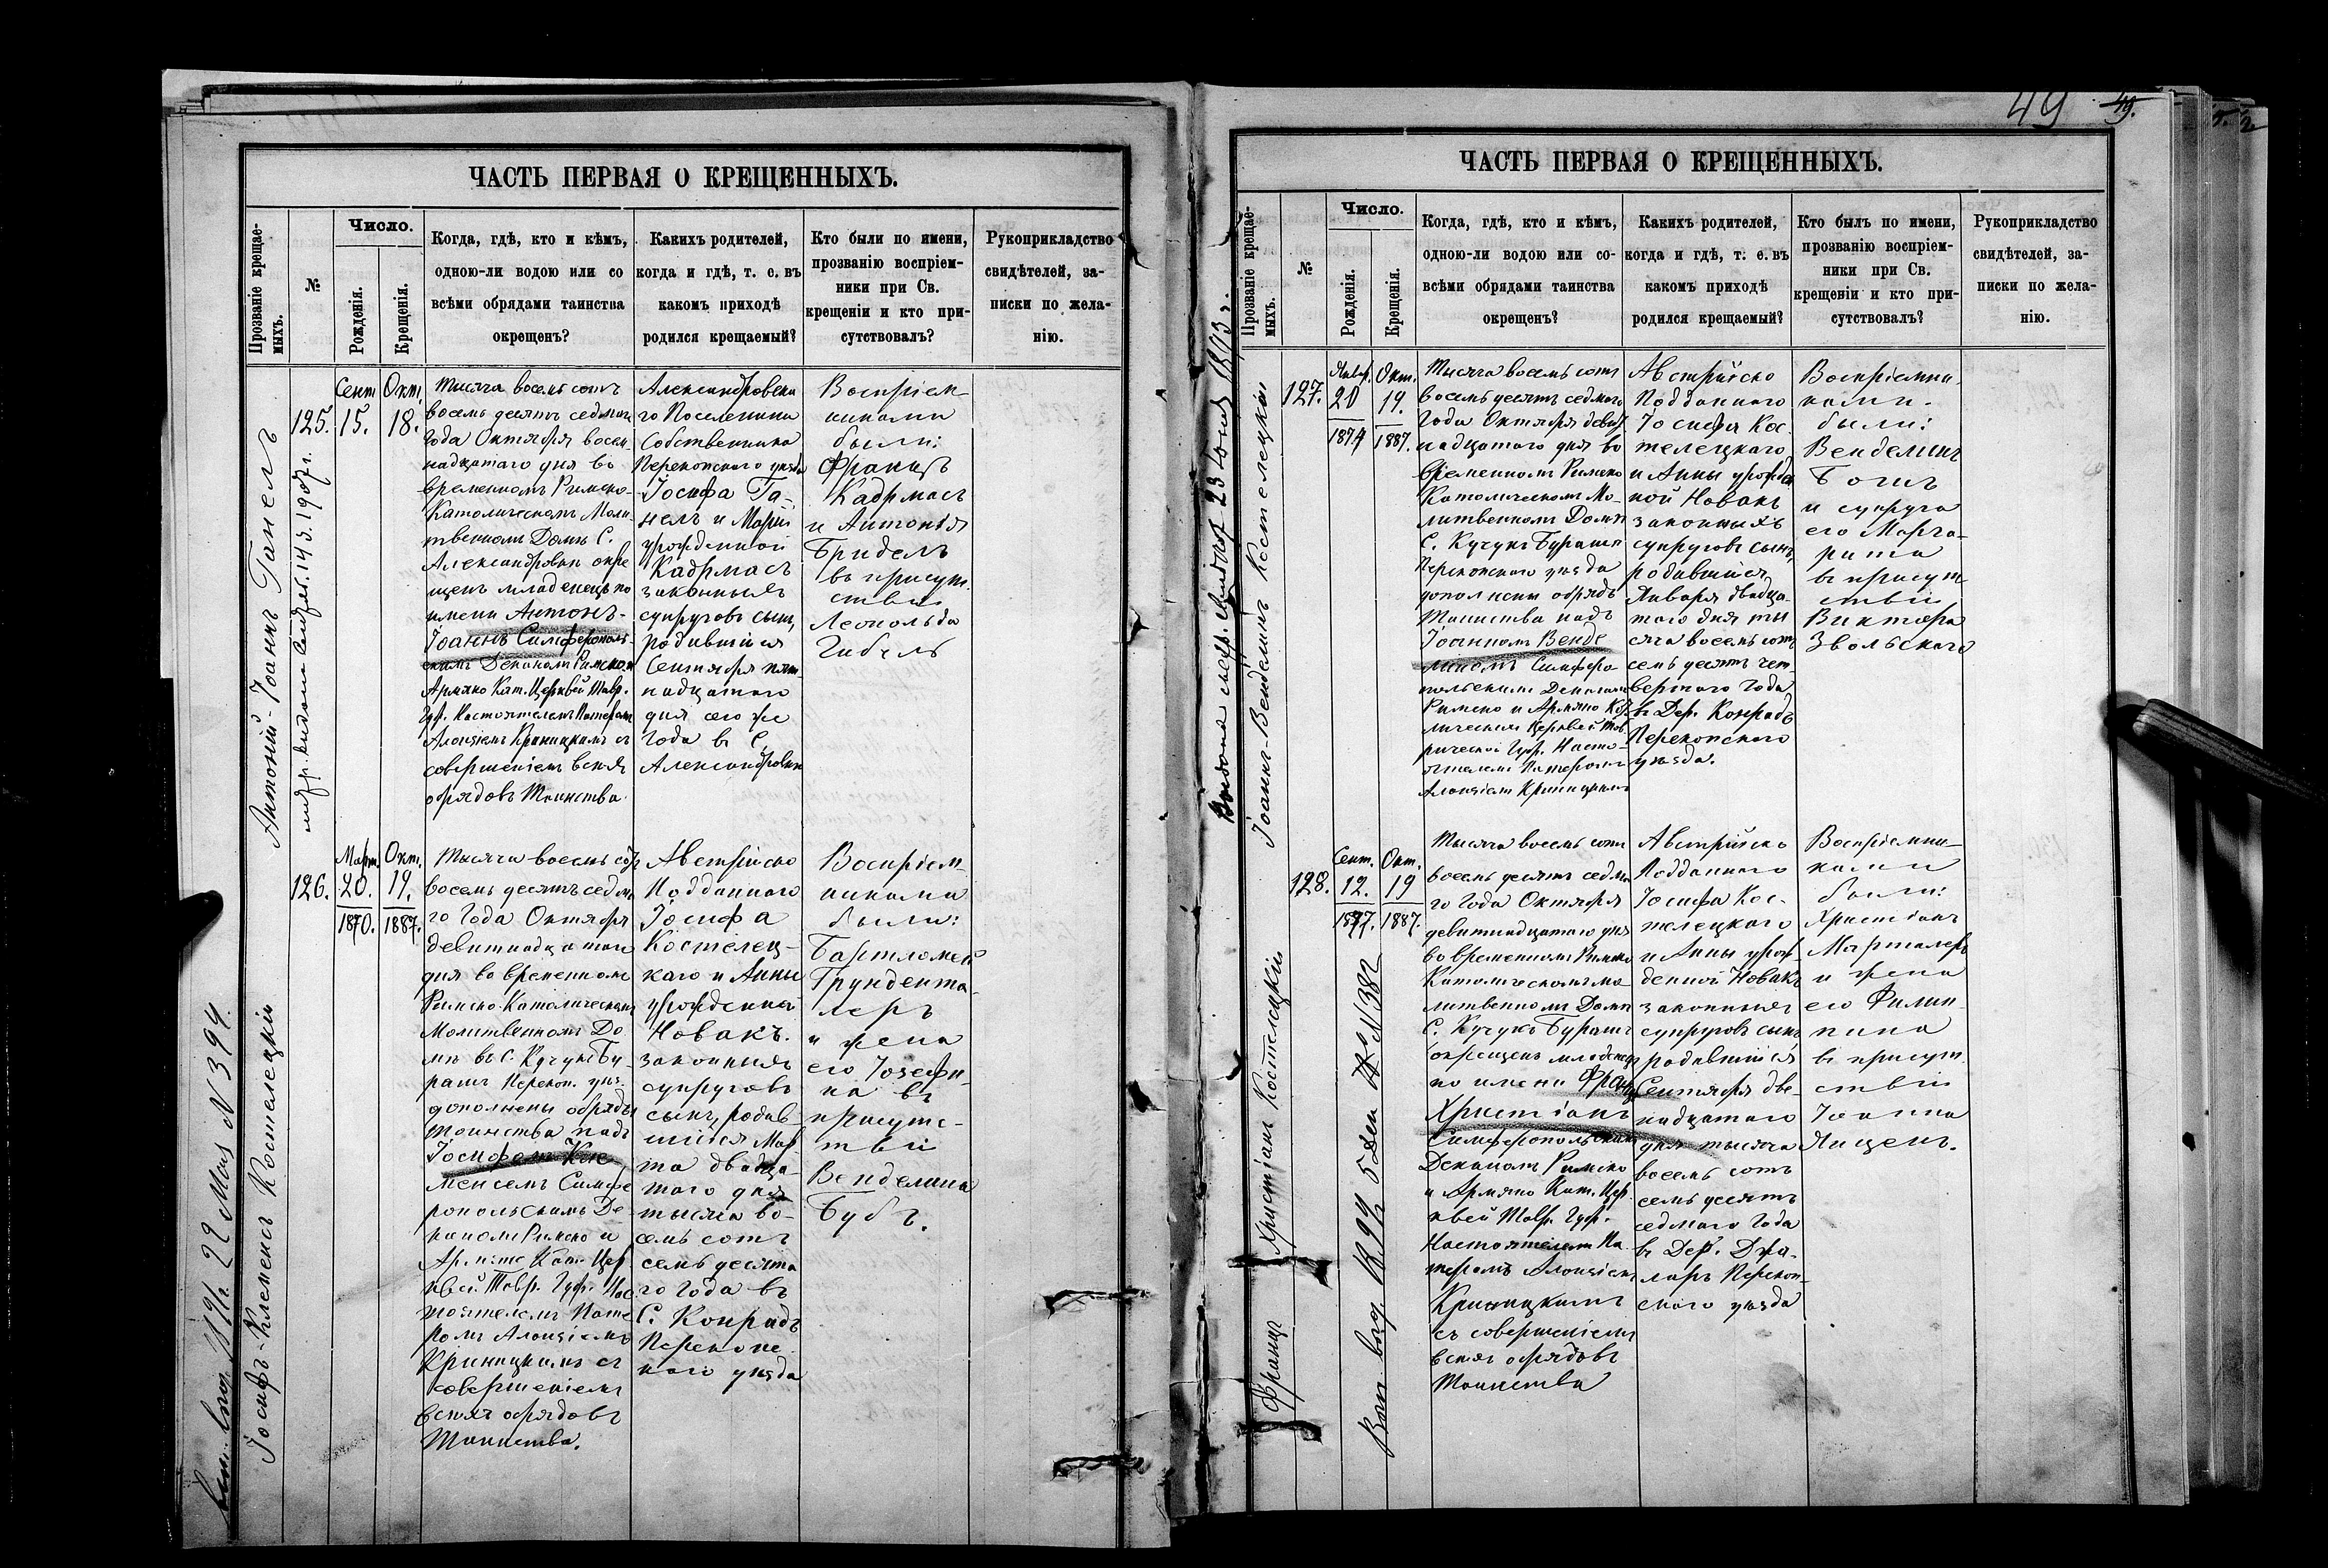 ЧАСТЬ ПЕРВАЯ О КРЕЩЕННЫХЪ.
Прозваніе крещае-
мыхъ.
№
Число.
Рожденія.
Крещенія.
Когда, гдѣ, кто и кѣмъ,
одною-ли водою или со
всѣми обрядами таинства
окрещенъ?
Какихъ родителей,
когда и гдѣ, т. е. въ
какомъ приходѣ
родился крещаемый?
Кто были по имени,
прозванію воспріем-
ники при Св.
крещеніи и кто при-
сутствовалъ?
Рукоприкладство
свидѣтелей, за-
писки по жела-
нію.
Антоній-Іоаннъ Ганель
125.
Сент.
15.
Окт.
18.
Тысяча восемь сотъ
восемь десятъ седмаго
Года Октября восем
надцатаго дня во
временномъ Римско-
Католическомъ Моли
твенномъ Домѣ С.
Александровки окре
щенъ младенецъ по
имени Антонъ-
Іоаннъ Симферополь-
скимъ Деканомъ Римско и
Армяно Кат. Церквей Тавр.
Губ. Настоятелемъ Патеромъ
Алоизіемъ Криницкимъ съ
совершеніемъ всѣхъ
обрядовъ Таинства.
Александровска
го Поселянина
Собственника
Перекопскаго уѣзда
Іосифа Га-
нель и Маріи
урожденной
Кадрмасъ
законныхъ
супруговъ сынъ,
родившійся
Сентября пят-
надцатаго
дня сего же
Года въ С.
Александровкѣ
Воспріем-
никами
были:
Францъ
Кадрмасъ
и Антонія
Бридель
въ присут.
ствіи
Леопольда
Гибель
Іосифъ-Клеменсъ Костелецкій
126.
Март.
20.
1870.
Окт.
19.
1887.
Тысяча восемь сотъ
восемь десятъ седма
го Года Октября
девятнадцатаго
дня во временномъ
Римско-Католическомъ
Молитвенномъ До
мѣ въ С. Кучукъ Бу
рашъ Перекоп. уѣз.
дополнены обряды
таинства надъ
Іосифомъ Кле
менсемъ Симфе
ропольскимъ Де
каномъ Римско и
Армяно Кат. Цер
квей Тавр. Губ. Нас
тоятелемъ Пате
ромъ Алоизіемъ
Криницкимъ съ
совершеніемъ
всѣхъ обрядовъ
Таинства.
Австрійско
Подданнаго
Іосифа
Костелец-
каго и Анны
урожденной
Новакъ.
законныхъ
супруговъ
сынъ, родив-
шійся Мар
та двадца-
таго дня
тысяча во-
семь сотъ
семь десята
го Года въ
С. Конрадъ
Перекопс
каго уѣзда
Воспріем-
никами
были:
Бартломей
Грундента-
леръ
и жена
его Іозефи-
на въ
присутс-
твіи
Венделина
Бубъ.
49
ЧАСТЬ ПЕРВАЯ О КРЕЩЕННЫХЪ.
Прозваніе крещае-
мыхъ.
№
Число.
Рожденія.
Крещенія.
Когда, гдѣ, кто и кѣмъ,
одною-ли водою или со-
всѣми обрядами таинства
окрещенъ?
Какихъ родителей,
когда и гдѣ, т. е. въ
какомъ приходѣ
родился крещаемый?
Кто былъ по имени,
прозванію воспріем-
ники при Св.
крещеніи и кто при-
сутствовалъ?
Рукоприкладство
свидѣтелей, за-
писки по жела-
нію.
Іоаннъ-Венделинъ Костелецкій
127.
Январ.
20
1874
Окт.
19.
1887.
Тысяча восемь сотъ
восемь десятъ седмаго
Года Октября девят
надцатаго дня во
временномъ Римско
Католическомъ Мо-
литвенномъ Домѣ
С. Кучукъ Бурашъ
Перекопскаго уѣзда
дополнены обряды
Таинства надъ
Іоанномъ Венде
линомъ Симферо-
польскимъ Деканомъ
Римско и Армяно Като
лическихъ Церквей Тав
рической Губ. Насто-
ятелемъ Патеромъ
Алоизіемъ Криницкимъ
Австрійско
Подданнаго
Іосифа Кос-
телецкаго
и Анны урожден
ной Новакъ
законныхъ
супруговъ сынъ,
родившійся
Января двадца-
таго дня ты
сяча восемь сотъ
семь десятъ чет-
вертаго Года
въ Дер. Конрадъ
Перекопскаго
уѣзда.
Воспріемни-
ками
были:
Венделинъ
Богъ
и супруга
его Марга-
рита
въ присут
ствіи
Виктора
Звольскаго
Францъ Христіанъ Костелецкій
128.
Сент.
12.
1877.
Окт.
19
1887.
Тысяча восемь сотъ
восемь десятъ седма
го Года Октября
девятнадцатаго дня
во временномъ Римско
Католическомъ мо-
литвенномъ Домѣ
С. Кучукъ Бурашъ
окрещенъ младенецъ
по имени Францъ
Христіанъ
Симферопольскимъ
Деканомъ Римско
и Армяно Кат. Цер
квей Тавр. Губ.
Настоятелемъ Па-
теромъ Алоизіемъ
Криницкимъ
съ совершеніемъ
всѣхъ обрядовъ
Таинства
Австрійско
Подданнаго
Іосифа Кос-
телецкаго
и Анны урож-
денной Новакъ
законныхъ
супруговъ сынъ
родившійся
Сентября две-
надцатаго
дня тысяча
восемь сотъ
семь десятъ
седмаго Года
въ Дер. Джа-
ларъ Перекоп-
скаго уѣзда
Воспріемни-
ками
были:
Христіанъ
Марталеръ
и жена
его Филип-
пина
въ присут.
ствіи
Іоанна
Яицепъ.